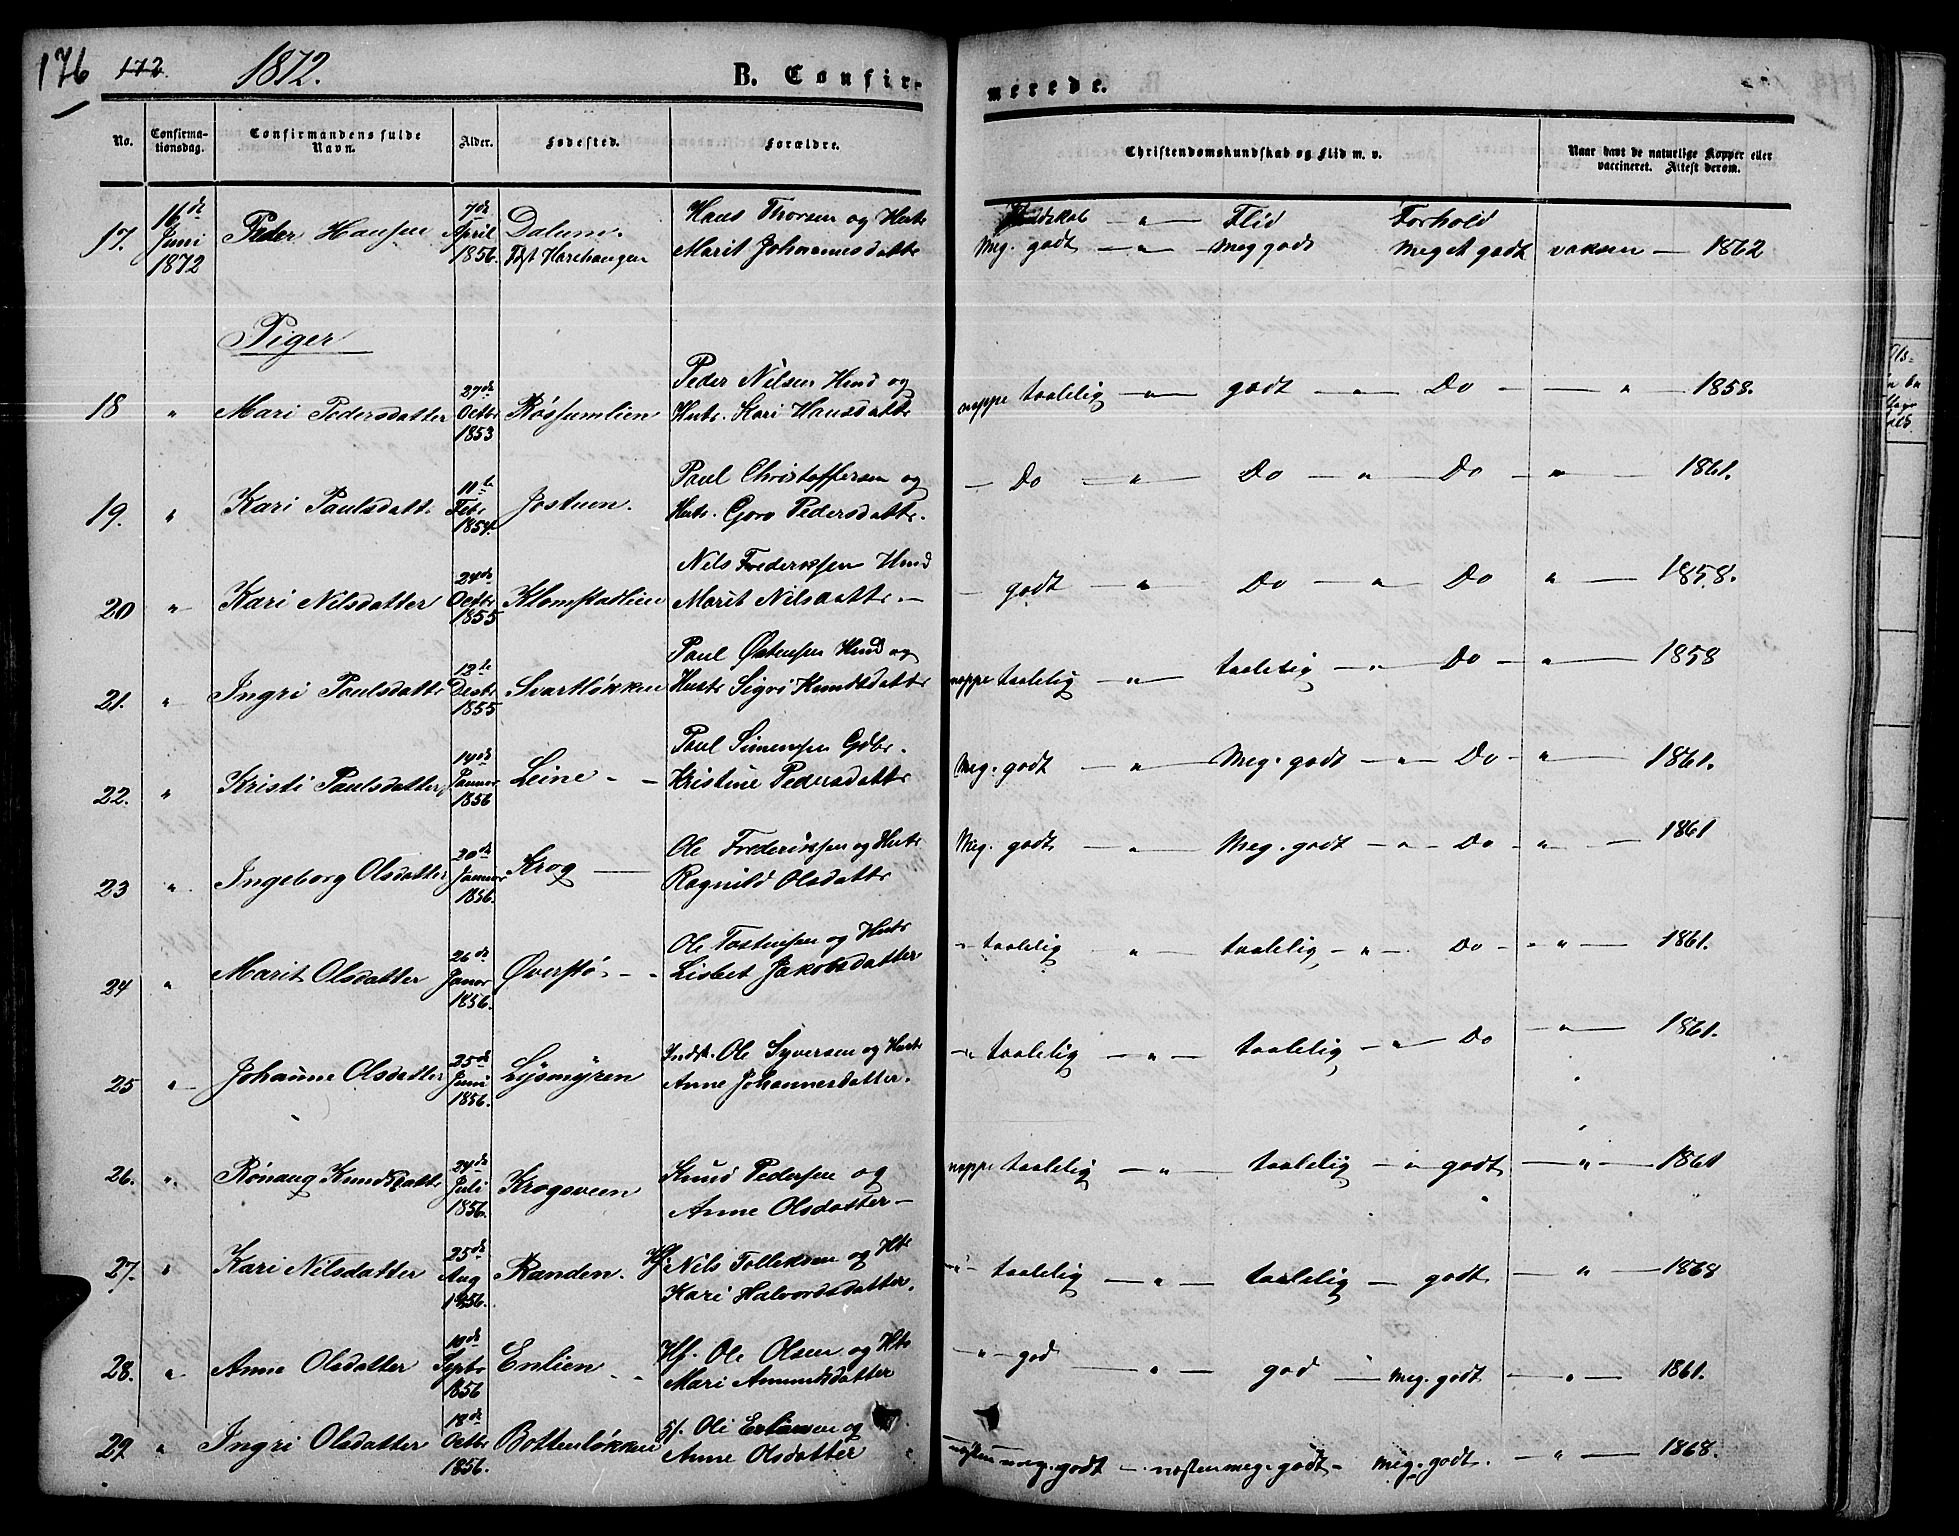 176 172. 1872. B. Confir-
merede.
No. Confirma-
tionsdag. Confirmandens fulde
Navn. Alder. Fødested. Forældre. Christendomskundskab og Flid m. v. Naar havt de naturlige Kopper eller
vaccineret. Attest derom.
17. 16de Juni 1872 Peder Hansen 7de April 1856. Dalum. Hans Thorsen og Hustr Kundskab " Flid Forhold
Fdst Harehaugen Marit Johannesdattr Meg. godt " meg godt Meget godt vaksin 1862
Piger
18 " Mari Pedersdatter 27de Octbr 1853 Røssumlien Peder Nilsen Hund og
Hustr. Kari Hansdattr neppe taalelig " godt " Do " 1858.
19. " Kari Paulsdatt. 11te Febr 1854. Jostuen. Paul Christoffersen og
Hustr. Goro Pedersdattr. Do " Do " Do " 1861.
20 " Kari Nilsdatter 24de Octbr 1855 Klomstadlien Nils Frederiksen Hund
Marit Nilsdattr. godt " Do " Do " 1858.
21. " Ingri Paulsdattr 12te Decbr 1855 Svartløkken Paul Østensen Hund og
Hustr Sigri Knudsdattr neppe taalelig " taalelig " Do " 1858
22. " Kristi Paulsdatter 14de Januar 1856 Leine Paul Simensen Gdbr.
Kristine Pedersdattr Meg. godt " Meg. godt " Do " 1861.
23 " Ingeborg Olsdatter 20de Januar 1856. Krog Ole Frederiksen og Hustr
Ragnild Olsdattr Meg. godt " Meg. godt " Do " 1861
24 " Marit Olsdatter 26de Janr 1856. Øverstø Ole Tostensen og Hustr
Lisbet Jakobsdatter " taalelig " taalelig " Do " 1861.
25 " Johanne Olsdatter 25de Juni 1856. Lysmyren Indst. Ole Syversen og Hustr
Anne Johannesdatter. " taalelig " taalelig " Do " 1861.
26. " Rønaug Knudsdattr 24de Juli 1856. Krogsveen Knud Pedersen og
Anne Olsdatter neppe taalelig " taalelig " godt " 1861
27. " Kari Nilsdatter 25de Aug 1856. Randen. Hf. Nils Tolleksen og Htr
Kari Halvordsdatter. " taalelig " taalelig godt " 1868
28. " Anne Olsdatter 10de Septbr 1856 Enlien Hf. Ole Olsen og Htr
Mari Amundsdatter " god " god meg. godt " 1861.
29 " Ingri Olsdatter 18de Octbr 1856. Bottenløkken Gf. Ole Erlansen og
Anne Olsdatter næsten meg. godt næsten meg. godt meg. godt. " 1868.